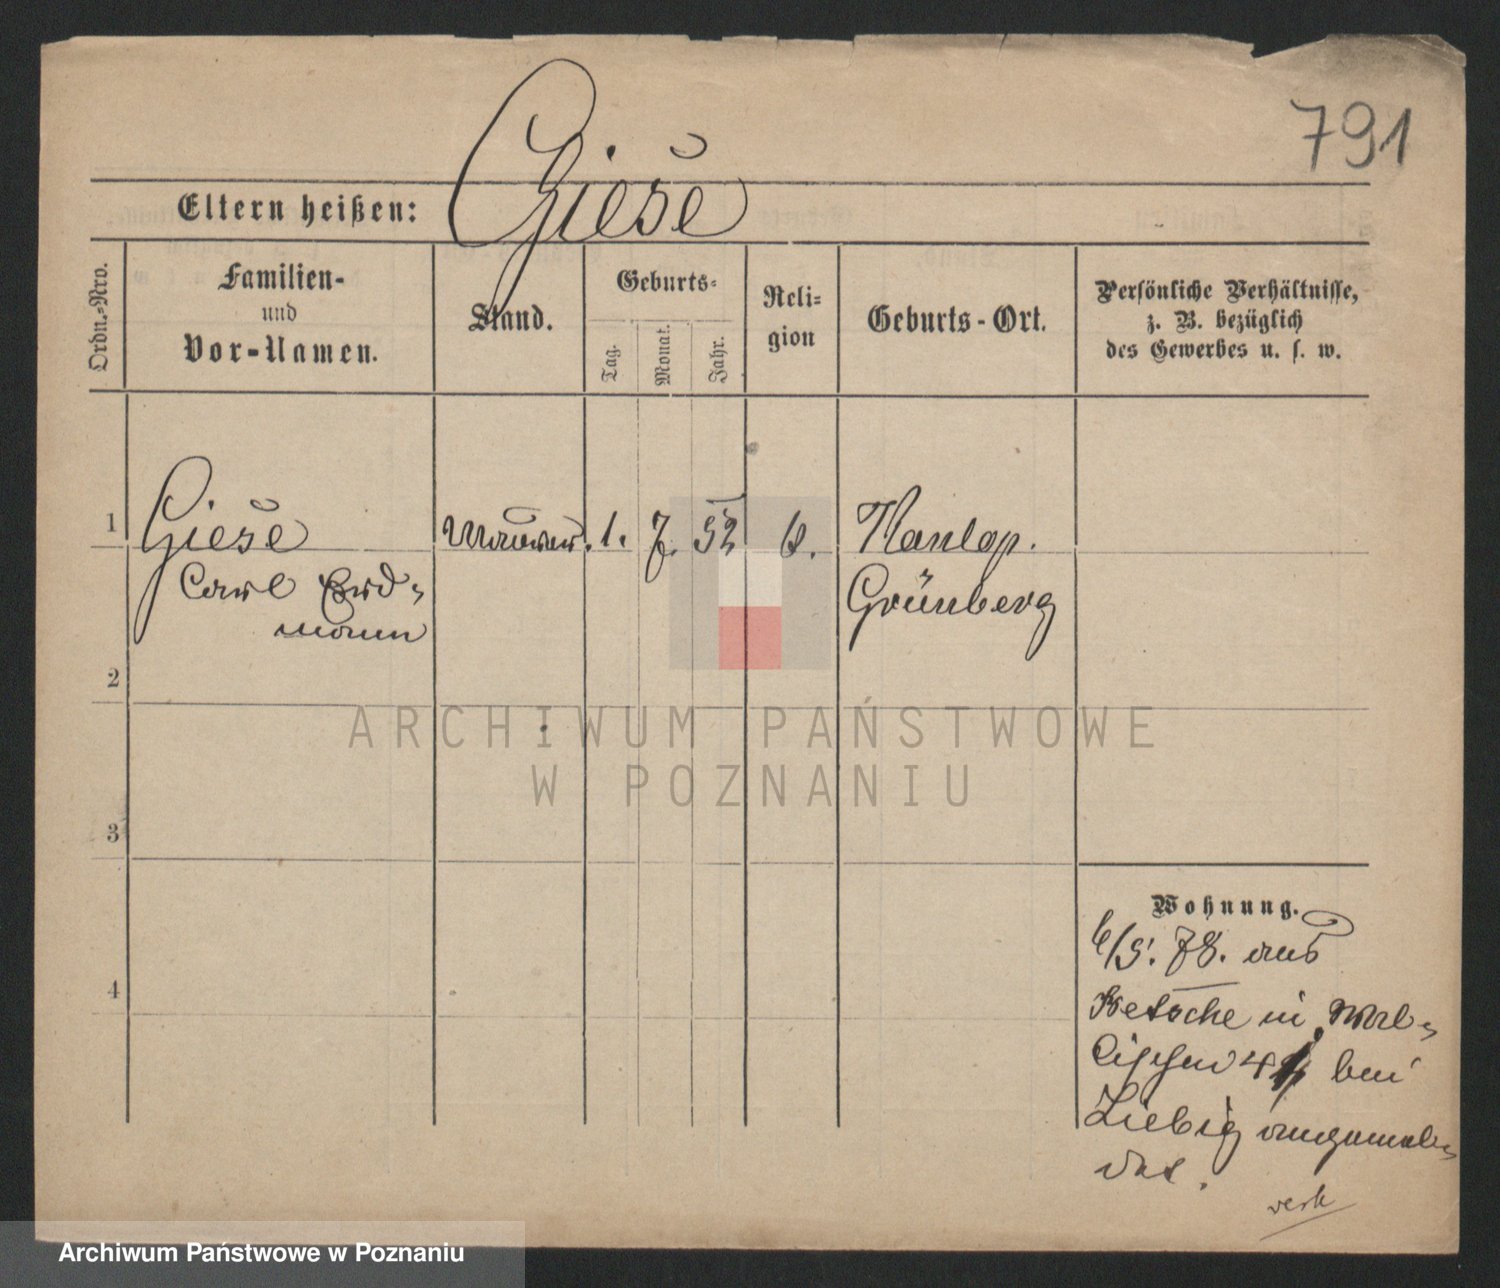 791
Eltern heißen: Giese
Ordn.-Nro.
Familien-
und
Vor-Namen.
Stand.
Geburts-
Tag.
Monat.
Jahr.
Reli-
gion
Geburts-Ort.
Persönliche Verhältnisse,
z. B. bezüglich
des Gewerbes u. s. w.
1
Giese
Carl Erd-
mann
Maurer. 1. 7. 52
Grünberg
2
3
4
Wohnung.
6/5. 78. aus
in Wal-
lischei bei
Liebig angemel-
det.
ARCHIWUM PAŃSTWOWE
W POZNANIU
Archiwum Państwowe w Poznaniu